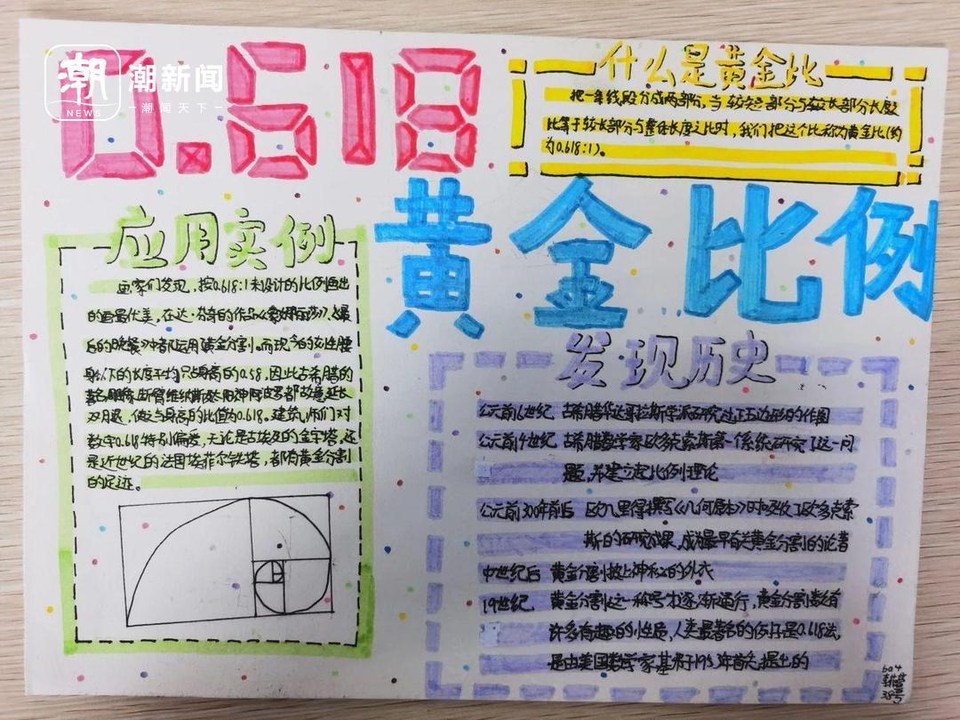 潮
NEWS
潮新闻
潮闻天下
0.618
什么是黄金比
把一条线段分成两部分,当较短部分与较长部分长度
比等于较长部分与整体长度之比时,我们把这个比称为黄金比(约
为0.618:1)。
黄金比例
应用实例
画家们发现,按0.618:1来设计的比例画出
的画最优美,在达·芬奇的作品《蒙娜丽莎》、《最
后的晚餐》中都运用黄金分割,而现今的女性腰
身以下的长度平均只占身高的0.58,因此古希腊的
断臂维纳斯 都故意延长
双腿,使之与身高的比值为0.618,建筑师们对
数字0.618特别偏爱,无论是古埃及的金字塔,还
是近世纪的法国埃菲尔铁塔,都有黄金分割
的足迹。
发现历史
公元前6世纪 古希腊毕达哥拉斯学派研究过正五边形的作图
公元前4世纪 古希腊数学家欧多克索斯第一系统研究了这一问
题,并建立起比例理论
公元前300年前后 欧几里得撰写《几何原本》时吸收了欧多克索
斯的研究成果,成为最早有关黄金分割的论著
中世纪后 黄金分割披上神秘的外衣
19世纪 黄金分割这一称号才逐渐通行,黄金分割数有
许多有趣的性质,人类最著名的例子是0.618法,
是由美国数学家基弗于1953年首先提出的
604
38号